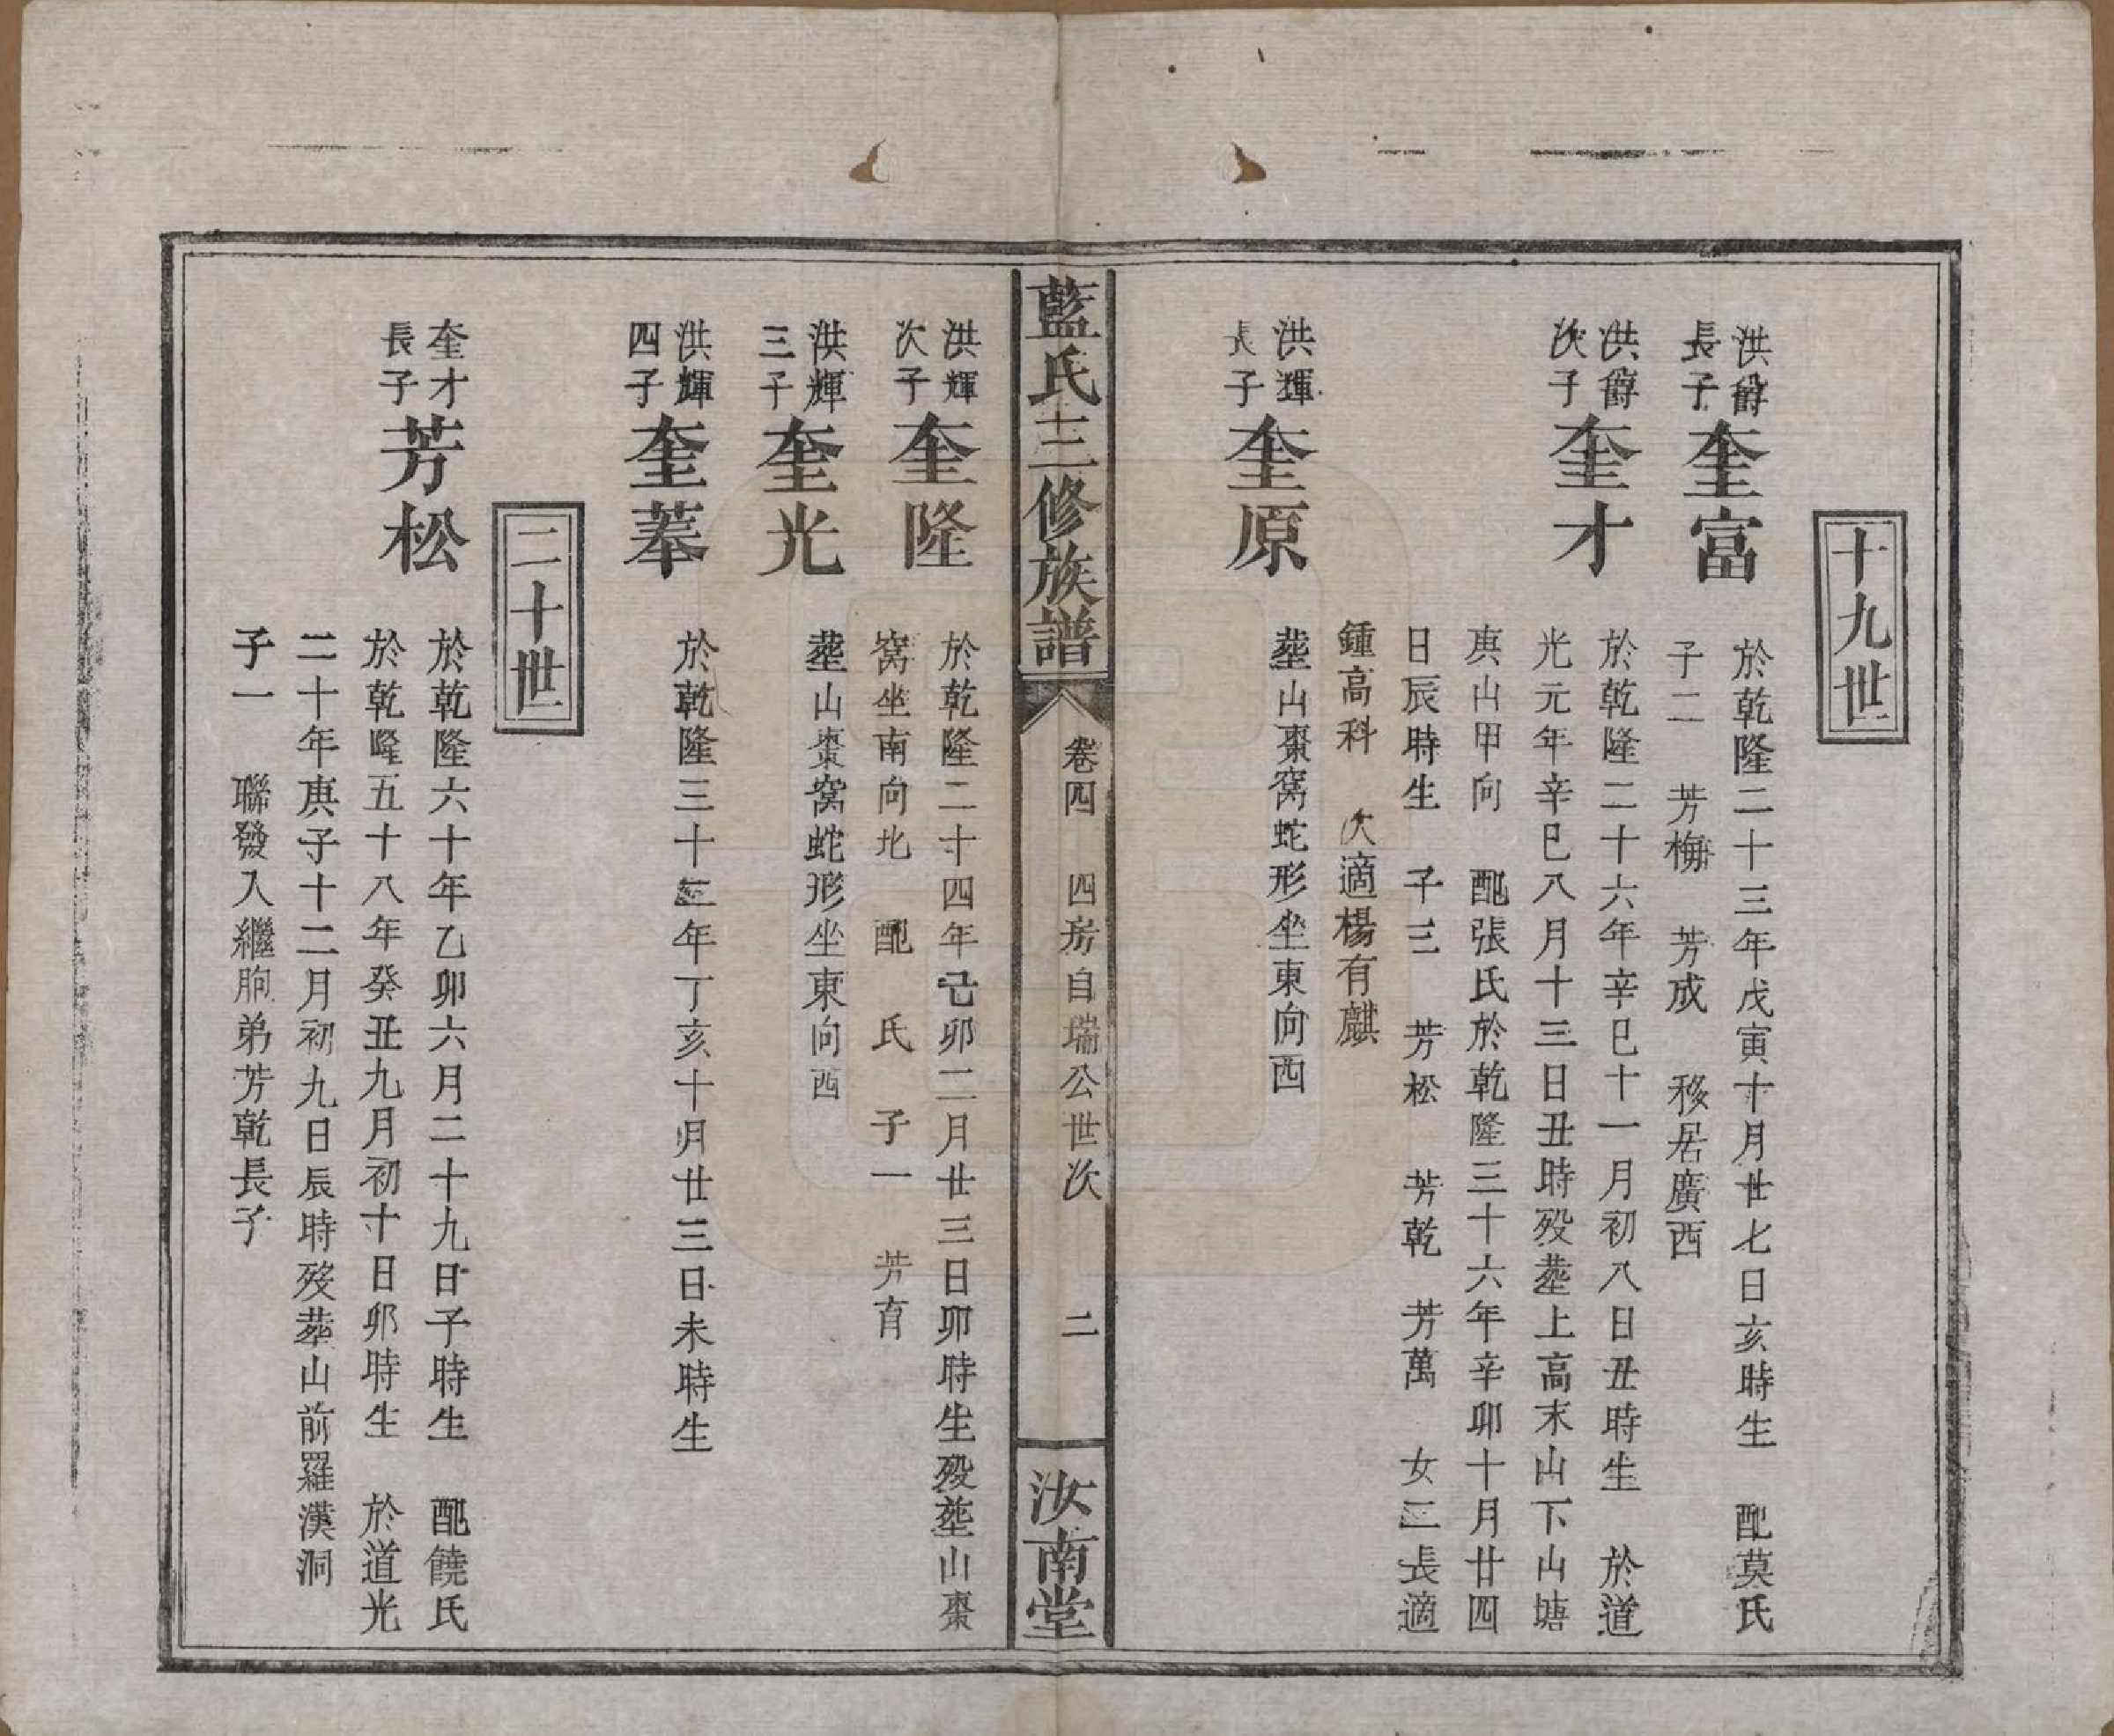 十九世
洪爵長子奎富
於乾隆二十三年戊寅十月廿七日亥時生 配莫氏
子二 芳梅 芳成 移居廣西
洪爵次子奎才
於乾隆二十六年辛巳十一月初八日丑時生 於道
光元年辛巳八月十三日丑時歿塟上高末山下山塘
庚山甲向 配張氏於乾隆三十六年辛卯十月廿四
日辰時生 子三 芳松 芳乾 芳萬 女二長適
鍾高科 次適楊有麒
洪輝長子奎原
塟山棗窩蛇形坐東向西
藍氏三修族譜 卷四 四房自瑞公世次 二 汝南堂
洪輝次子奎隆
於乾隆二十四年己卯二月廿三日卯時生歿塟山棗
窩坐南向北 配 氏 子一 芳育
洪輝三子奎光
塟山棗窩蛇形坐東向西
洪輝四子奎莑
於乾隆三十二年丁亥十月廿三日未時生
二十世
奎才長子芳松
於乾隆六十年乙卯六月二十九日子時生 配饒氏
於乾隆五十八年癸丑九月初十日卯時生 於道光
二十年庚子十二月初九日辰時歿塟山前羅漢洞
子一 聯發入繼胞弟芳乾長子